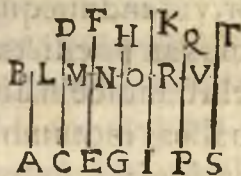 D F H K Q T
B L M N O R V
A C E G I P S